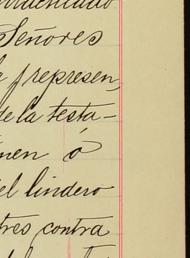 Señores
represen,
de la testa-
nen ó
el lindero
tres contra